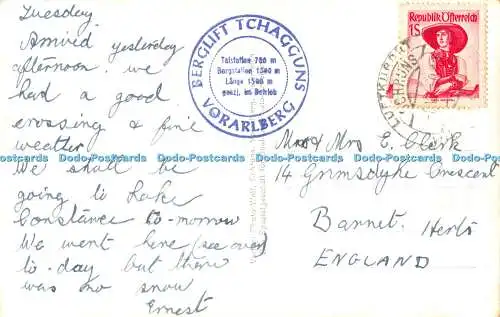 Tuesday.
Arrived yesterday
afternoon. We
had a good
crossing & fine
weather.
We shall be
going to Lake
Constance to-morrow
We went here (see over)
to-day but there
was no snow
Ernest
BERGLIFT TCHAGGUNS
Talstation 700 m
Bergstation 1500 m
Länge 1500 m
ganzj. im Betrieb
VORARLBERG
Republik Österreich
1S
LUFTKURORT
TSCHAGGUNS
Mr & Mrs E. Clark
14 Grimsdyke Crescent
Barnet. Herts
ENGLAND
Dodo-Postcards Dodo-Postcards Dodo-Postcards Dodo-Postcards Dodo-Postcards